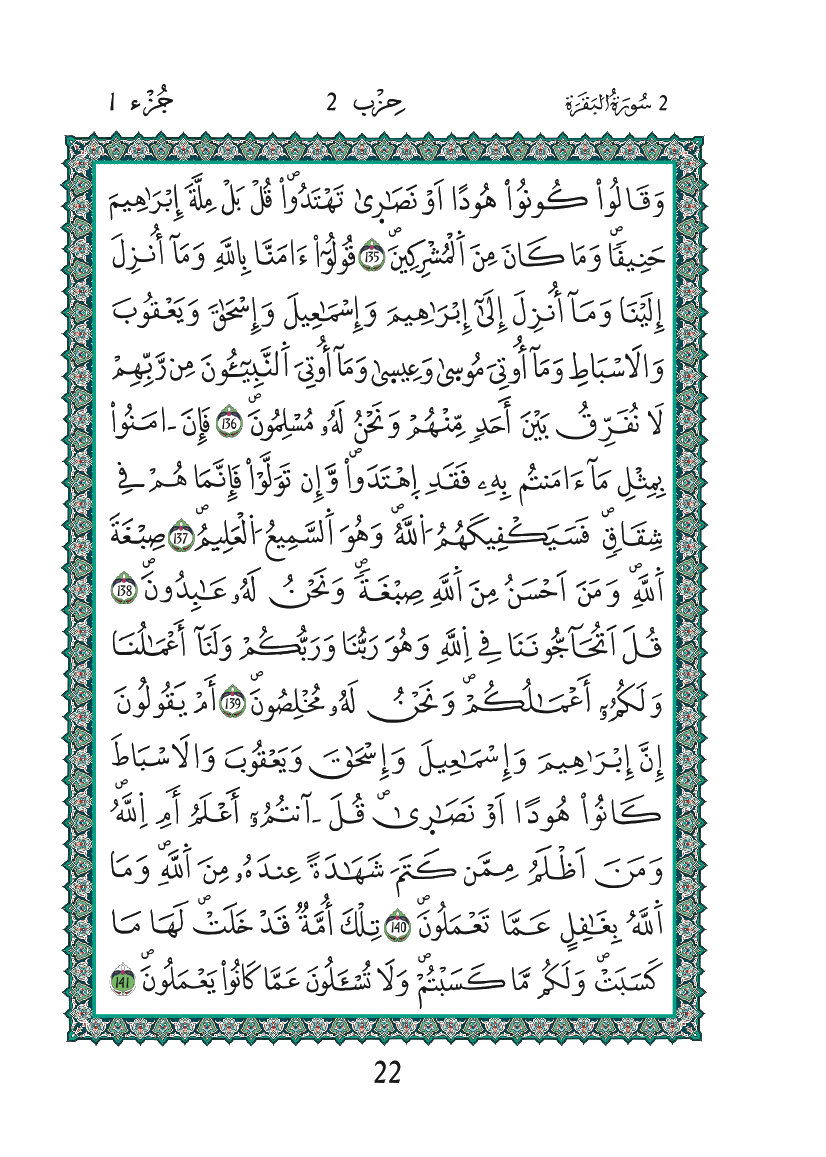 2 سُورَةُ الْبَقَرَة حِزْب 2 جُزْء 1
وَقَالُواْ كُونُواْ هُودًا اَوْ نَصَٰر۪ىٰ تَهْتَدُواْۖ قُلْ بَلْ مِلَّةَ إِبْرَٰهِيمَ
حَنِيفاٗۖ وَمَا كَانَ مِنَ اَ۬لْمُشْرِكِينَۖ 135 قُولُوٓاْ ءَامَنَّا بِاللَّهِ وَمَآ أُنزِلَ
إِلَيْنَا وَمَآ أُنزِلَ إِلَىٰٓ إِبْرَٰهِيمَ وَإِسْمَٰعِيلَ وَإِسْحَٰقَ وَيَعْقُوبَ
وَالَاسْبَاطِ وَمَآ أُوتِيَ مُوس۪ىٰ وَعِيس۪ىٰ وَمَآ أُوتِيَ اَ۬لنَّبِيٓـُٔونَ مِن رَّبِّهِمْ
لَا نُفَرِّقُ بَيْنَ أَحَدٖ مِّنْهُمْ وَنَحْنُ لَهُۥ مُسْلِمُونَۖ 136 فَإِنَ اٰمَنُواْ
بِمِثْلِ مَآ ءَامَنتُم بِهِۦ فَقَدِ اِ۪هْتَدَواْۖ وَّإِن تَوَلَّوْاْ فَإِنَّمَا هُمْ فِي
شِقَاقٖۖ فَسَيَكْفِيكَهُمُ اُ۬للَّهُۖ وَهُوَ اَ۬لسَّمِيعُ اُ۬لْعَلِيمُۖ 137 صِبْغَةَ
اَ۬للَّهِۖ وَمَنَ اَحْسَنُ مِنَ اَ۬للَّهِ صِبْغَةٗۖ وَنَحْنُ لَهُۥ عَٰبِدُونَۖ 138
قُلَ اَتُحَآجُّونَنَا فِي اِ۬للَّهِ وَهُوَ رَبُّنَا وَرَبُّكُمْ وَلَنَآ أَعْمَٰلُنَا
وَلَكُمُۥٓ أَعْمَٰلُكُمْۖ وَنَحْنُ لَهُۥ مُخْلِصُونَۖ 139 أَمْ يَقُولُونَ
إِنَّ إِبْرَٰهِيمَ وَإِسْمَٰعِيلَ وَإِسْحَٰقَ وَيَعْقُوبَ وَالَاسْبَاطَ
كَانُواْ هُودًا اَوْ نَصَٰر۪ىٰۖ قُلَ ءَآنتُمُۥٓ أَعْلَمُ أَمِ اِ۬للَّهُۖ
وَمَنَ اَظْلَمُ مِمَّن كَتَمَ شَهَٰدَةً عِندَهُۥ مِنَ اَ۬للَّهِۖ وَمَا
اَ۬للَّهُ بِغَٰفِلٍ عَمَّا تَعْمَلُونَۖ 140 تِلْكَ أُمَّةٞ قَدْ خَلَتْۖ لَهَا مَا
كَسَبَتْۖ وَلَكُم مَّا كَسَبْتُمْۖ وَلَا تُسْـَٔلُونَ عَمَّا كَانُواْ يَعْمَلُونَۖ 141
22